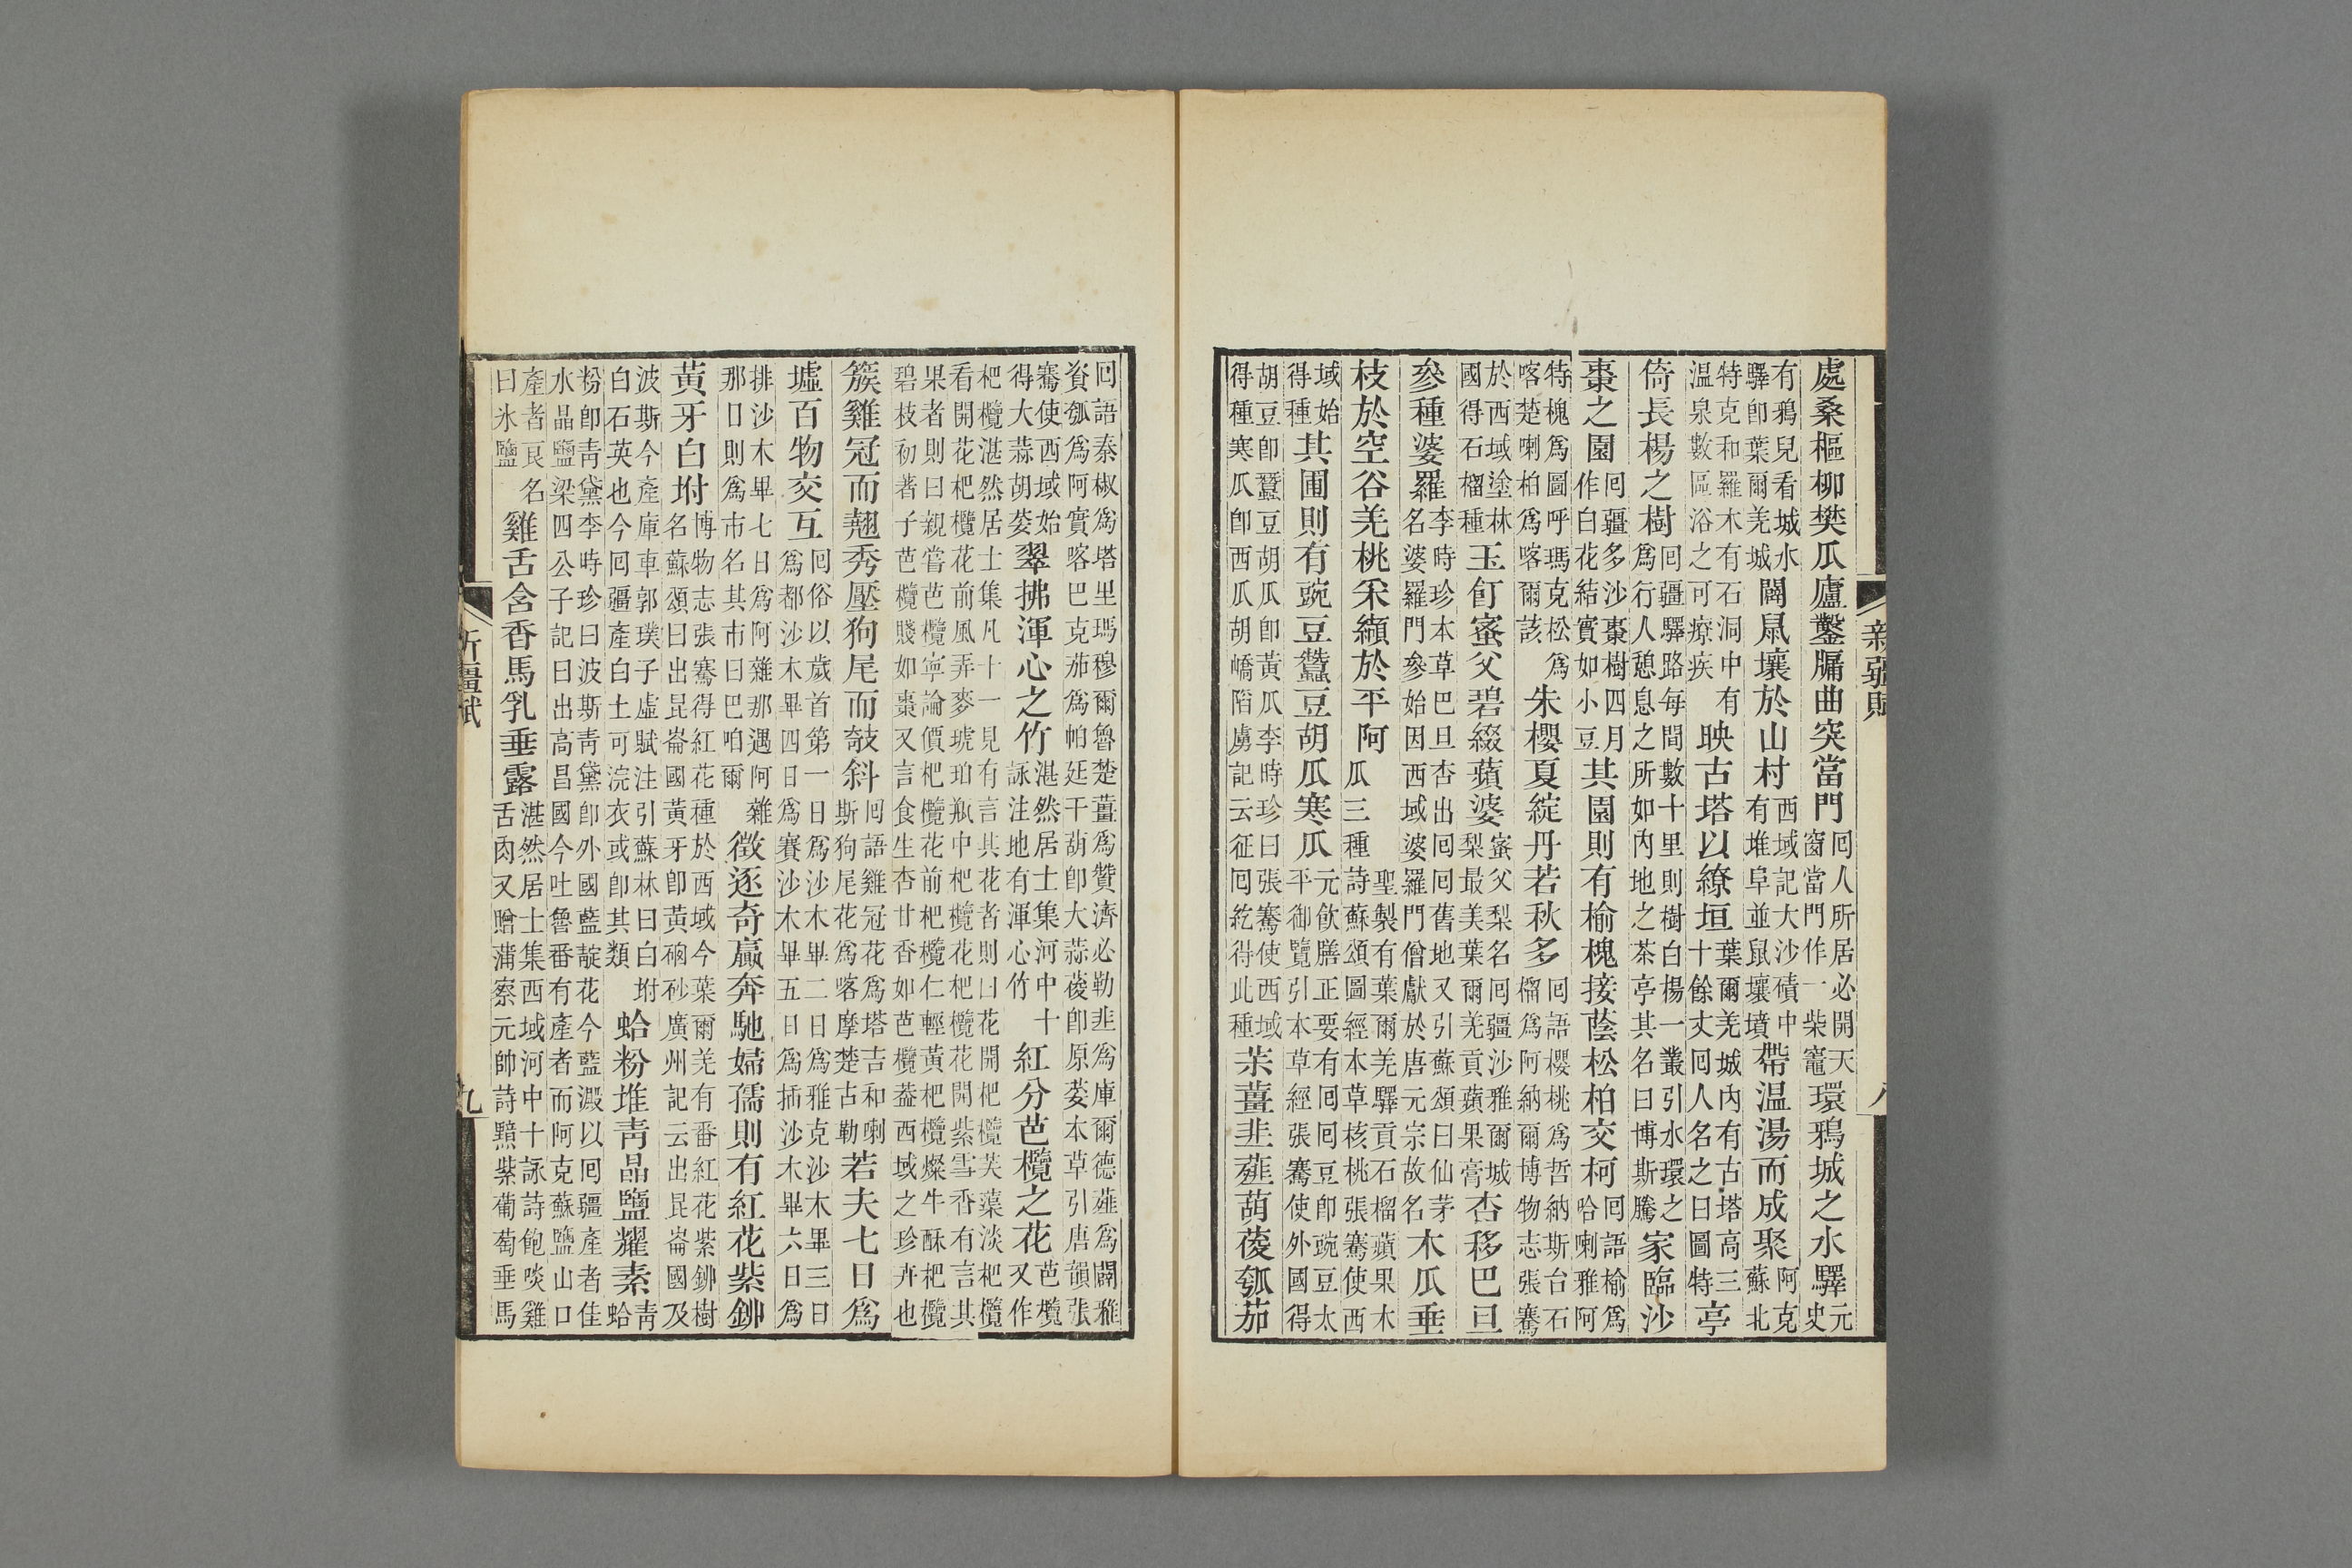 新疆賦
八
處桑樞柳樊瓜廬鑿牖曲突當門回人所居必開天窗當門作一柴竈環鴉城之水驛元史
有鴉兒看城水驛卽葉爾羌城闢鼠壤於山村西域記大沙磧中有堆阜並鼠壤墳帶温湯而成聚阿克蘇北
特克和羅木有石洞中有温泉數區浴之可療疾映古塔以繚垣葉爾羌城內有古塔高三十餘丈回人名之曰圖特亭
倚長楊之樹回疆驛路每間數十里則樹白楊一叢引水環之爲行人憩息之所如內地之茶亭其名曰博斯騰家臨沙
棗之園回疆多沙棗樹四月作白花結實如小豆其園則有榆槐接蔭松柏交柯回語榆爲哈喇雅阿
特槐爲圖呼瑪克松爲喀楚喇柏爲喀爾該朱櫻夏綻丹若秋多回語櫻桃爲哲納斯台石榴爲阿納爾博物志張騫
於西域塗林國得石榴種玉飣蜜父碧綴蘋婆蜜父梨名回疆沙雅爾城梨最美葉爾羌貢蘋果膏杏移巴旦
參種婆羅李時珍本草巴旦杏出回回舊地又引蘇頌曰仙茅名婆羅門參始因西域婆羅門僧獻於唐元宗故名木瓜垂
枝於空谷羌桃采纈於平阿聖製有葉爾羌驛貢石榴蘋果木瓜三種詩蘇頌圖經本草核桃張騫使西
域始得種其圃則有豌豆蠶豆胡瓜寒瓜元飲膳正要有回回豆卽豌豆太平御覽引本草經張騫使外國得
胡豆卽蠶豆胡瓜卽黃瓜李時珍曰張騫使西域得種寒瓜卽西瓜胡嶠陷虜記云征回紇得此種芣薑韭薤葫荽瓠茄
回語秦椒爲塔里瑪穆爾魯楚薑爲贊濟必勒韭爲庫爾德薤爲闢雅資瓠爲阿實喀巴克茄爲帕廷干葫卽大蒜荽卽原荽本草引唐韻張
騫使西域始得大蒜胡荽翠拂渾心之竹湛然居士集河中十詠注地有渾心竹紅分芭欖之花芭欖又作
杷欖湛然居士集凡十一見有言其花者則曰花開杷欖芙蕖淡杷欖看開花杷欖花前風弄麥琥珀瓶中杷欖花杷欖花開紫雪香有言其
果者則曰親嘗芭欖寧論價杷欖花前杷欖仁輕黃杷欖燦牛酥杷欖碧枝初著子芭欖賤如棗又言食生杏甘香如芭欖葢西域之珍卉也
簇雞冠而翹秀壓狗尾而攲斜回語雞冠花爲塔吉和喇斯狗尾花爲喀摩楚古勒若夫七日爲
墟百物交互回俗以歲首第一日爲沙木畢二日爲雅克沙木畢三日爲都沙木畢四日爲賽沙木畢五日爲插沙木畢六日爲
排沙木畢七日爲阿雜那遇阿雜那日則爲市名其市曰巴咱爾徵逐奇贏奔馳婦孺則有紅花紫鉚
黃牙白坿博物志張騫得紅花種於西域今葉爾羌有番紅花紫鉚樹名蘇頌曰出昆崙國黃牙卽黃硇砂廣州記云出昆崙國及
波斯今產庫車郭璞子虛賦注引蘇林曰白坿白石英也今回疆產白土可浣衣或卽其類蛤粉堆青晶鹽耀素青蛤
粉卽青黛李時珍曰波斯青黛卽外國藍靛花今藍澱以回疆產者佳水晶鹽梁四公子記曰出高昌國今吐魯番有產者而阿克蘇鹽山口
產者良名曰氷鹽雞舌含香馬乳垂露湛然居士集西域河中十詠詩飽啖雞舌肉又贈蒲察元帥詩黯紫葡萄垂馬
新疆賦
九